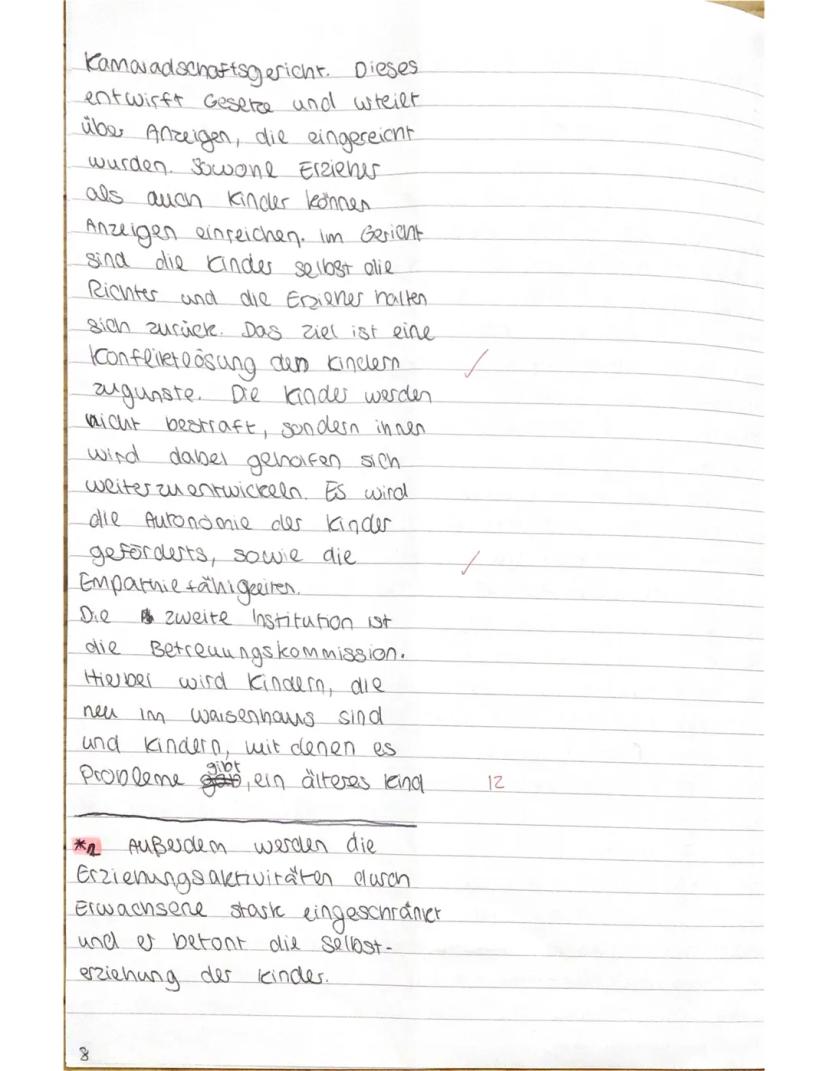 Kamaradschaftsgericht. Dieses
entwirft Gesetze und urteilt
über Anzeigen, die eingereicht
wurden. Sowohl Erzieher
als auch Kinder können
Anzeigen einreichen. Im Gericht
sind die Kinder selbst die
Richter und die Erzieher halten
sich zurück. Das Ziel ist eine
Konfliktlösung den Kindern
zugunste. Die Kinder werden
nicht bestraft, sondern ihnen
wird dabei geholfen sich
weiterzuentwickeln. Es wird
die Autonomie der Kinder
geförderts, sowie die
Empathiefähigkeiten.
Die zweite Institution ist
die Betreuungskommission.
Hierbei wird Kindern, die
neu im Waisenhaus sind
und Kindern, mit denen es
Probleme gibt, ein älteres Kind 12
*2 Außerdem werden die
Erziehungsaktivitäten durch
Erwachsene stark eingeschränkt
und er betont die Selbst-
erziehung der Kinder.
8